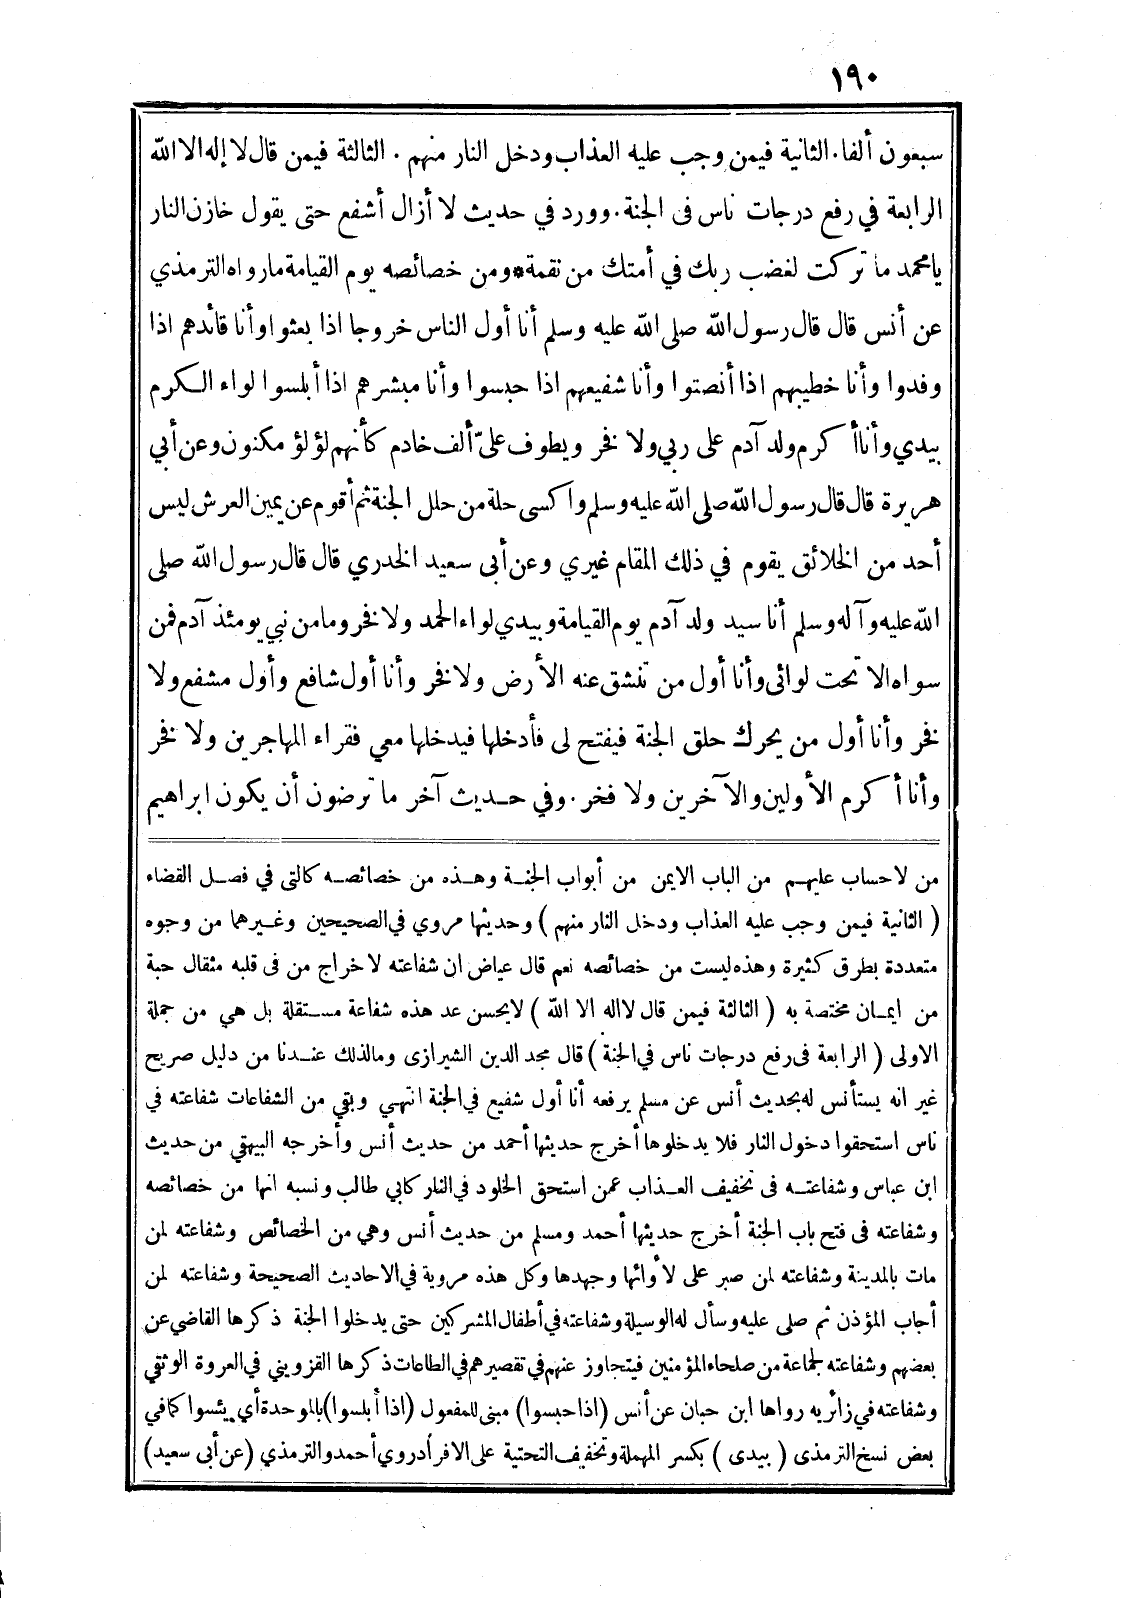 ١٩٠
سبعون ألفا. الثانية فيمن وجب عليه العذاب ودخل النار منهم . الثالثة فيمن قال لا إله الا الله
الرابعة في رفع درجات ناس فى الجنة. وورد في حديث لا أزال أشفع حتى يقول خازن النار
يا محمد ما تركت لغضب ربك في أمتك من نقمة*ومن خصائصه يوم القيامة ما رواه الترمذي
عن أنس قال قال رسول الله صلى الله عليه وسلم أنا أول الناس خروجا اذا بعثوا وأنا قائدهم اذا
وفدوا وأنا خطيبهم اذا أنصتوا وأنا شفيعهم اذا حبسوا وأنا مبشرهم اذا أبلسوا لواء الكرم
بيدي وأنا أكرم ولد آدم على ربي ولا فخر ويطوف علىّ ألف خادم كأنهم لؤلؤ مكنون وعن أبي
هريرة قال قال رسول الله صلى الله عليه وسلم وا كسى حلة من حلل الجنة ثم أقوم عن يمين العرش ليس
أحد من الخلائق يقوم في ذلك المقام غيري وعن أبى سعيد الخدري قال قال رسول الله صلى
الله عليه وآله وسلم أنا سيد ولد آدم يوم القيامة وبيدي لواء الحمد ولا فخر وما من نبي يومئذ آدم فمن
سواه الا تحت لوائى وأنا أول من تنشق عنه الأرض ولا فخر وأنا أول شافع وأول مشفع ولا
فخر وأنا أول من يحرك حلق الجنة فيفتح لى فأدخلها فيدخلها معي فقراء المهاجرين ولا فخر
وأنا أكرم الأولين والآخرين ولا فخر. وفي حديث آخر ما ترضون أن يكون ابراهيم
من لا حساب عليهم من الباب الايمن من أبواب الجنة وهذه من خصائصه كالتى في فصل القضاء
( الثانية فيمن وجب عليه العذاب ودخل النار منهم ) وحديثها مروي في الصحيحين وغيرهما من وجوه
متعددة بطرق كثيرة وهذه ليست من خصائصه نعم قال عياض ان شفاعته لاخراج من فى قلبه مثقال حبة
من ايمان مختصة به ( الثالثة فيمن قال لااله الا الله ) لايحسن عد هذه شفاعة مستقلة بل هي من جملة
الاولى ( الرابعة فى رفع درجات ناس في الجنة ) قال مجد الدين الشيرازى ومالذلك عندنا من دليل صريح
غير انه يستأنس له بحديث أنس عن مسلم يرفعه أنا أول شفيع في الجنة انتهى وبقي من الشفاعات شفاعته في
ناس استحقوا دخول النار فلا يدخلوها أخرج حديثها أحمد من حديث أنس وأخرجه البيهقي من حديث
ابن عباس وشفاعته فى تخفيف العذاب عمن استحق الخلود في النار كابي طالب ونسبه انها من خصائصه
وشفاعته فى فتح باب الجنة أخرج حديثها أحمد ومسلم من حديث أنس وهي من الخصائص وشفاعته لمن
مات بالمدينة وشفاعته لمن صبر على لأوائها وجهدها وكل هذه مروية في الاحاديث الصحيحة وشفاعته لمن
أجاب المؤذن ثم صلى عليه وسأل له الوسيلة وشفاعته في أطفال المشركين حتى يدخلوا الجنة ذكرها القاضي عن
بعضهم وشفاعته لجماعة من صلحاء المؤمنين فيتجاوز عنهم في تقصيرهم في الطاعات ذكرها القزويني في العروة الوثقي
وشفاعته في زائريه رواها ابن حبان عن أنس (اذا حبسوا) مبنى للمفعول (اذا أبلسوا) بالموحدة أي يئسوا كما في
بعض نسخ الترمذى ( بيدى ) بكسر المهملة وتخفيف التحتية على الافراد روي أحمد والترمذي (عن أبى سعيد)